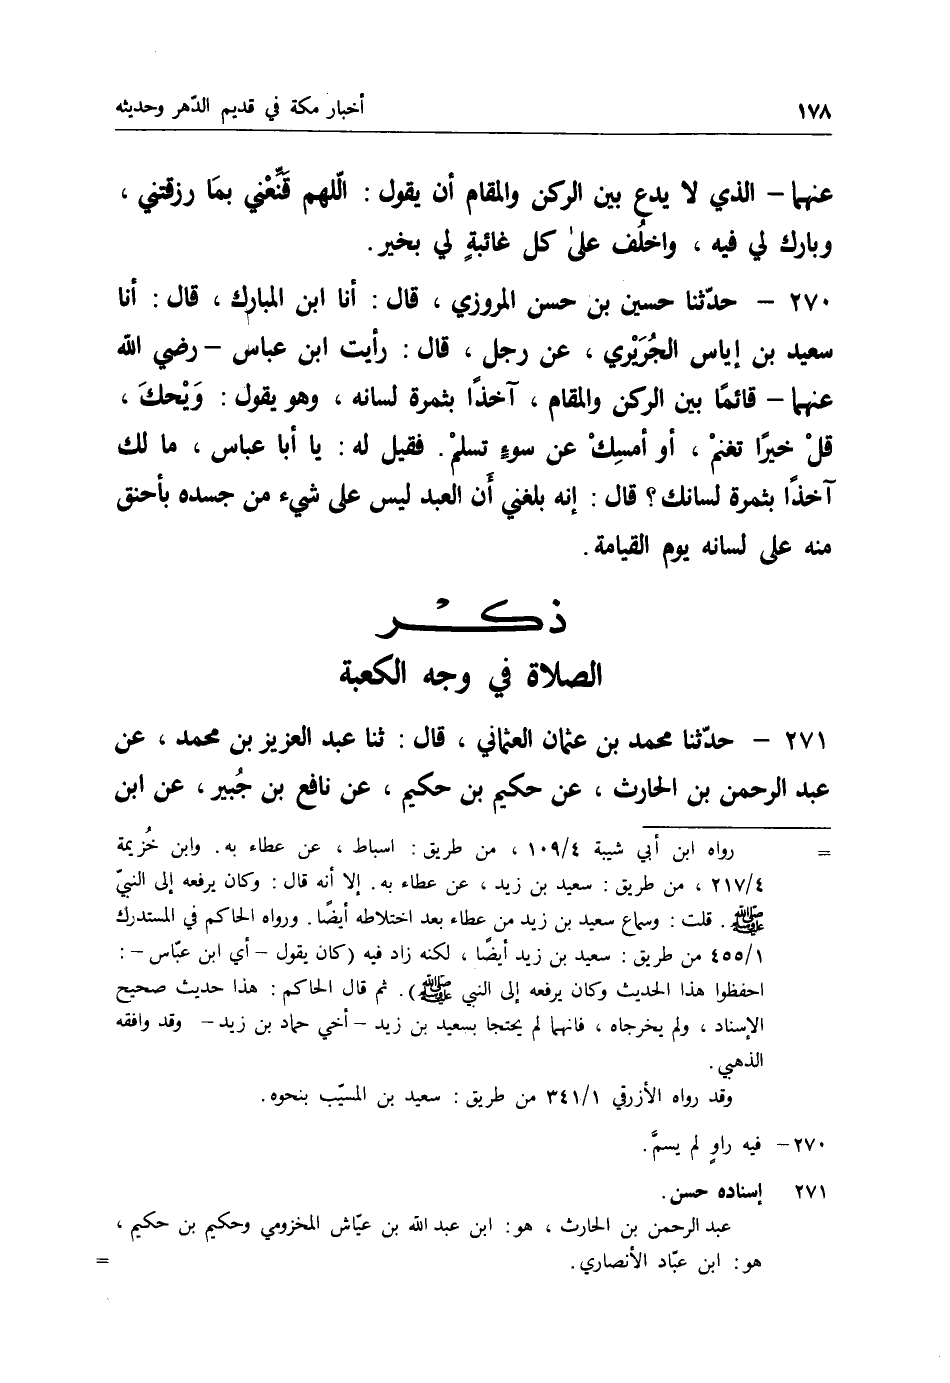 ١٧٨ أخبار مكة في قديم الدّهر وحديثه
عنهما – الذي لا يدع بين الركن والمقام أن يقول : الّلهم قَنِّعْني بمَا رزقتني ،
وبارك لي فيه ، واخلُف علىٰ كل غائبةٍ لي بخير .
٢٧٠ – حدّثنا حسين بن حسن المروزي ، قال : أنا ابن المبارك ، قال : أنا
سعيد بن إياس الجُرَيْري ، عن رجل ، قال : رأيت ابن عباس – رضي الله
عنهما – قائمًا بين الركن والمقام ، آخذًا بثمرة لسانه ، وهو يقول : وَيْحكَ ،
قلْ خيرًا تغنمْ ، أو أمسِكْ عن سوءٍ تسلمْ . فقيل له : يا أبا عباس ، ما لك
آخذًا بثمرة لسانك ؟ قال : إنه بلغني أَن العبد ليس على شيء من جسده بأحنق
منه على لسانه يوم القيامة .
ذكْر
الصلاة في وجه الكعبة
٢٧١ – حدّثنا محمد بن عثمان العثماني ، قال : ثنا عبد العزيز بن محمد ، عن
عبد الرحمن بن الحارث ، عن حكيم بن حكيم ، عن نافع بن جُبير ، عن ابن
= رواه ابن أبي شيبة ١٠٩/٤ ، من طريق : اسباط ، عن عطاء به . وابن خُزيمة
٢١٧/٤ ، من طريق : سعيد بن زيد ، عن عطاء به . إلا أنه قال : وكان يرفعه إلى النبيّ
ﷺ . قلت : وسماع سعيد بن زيد من عطاء بعد اختلاطه أيضًا . ورواه الحاكم في المستدرك
٤٥٥/١ من طريق : سعيد بن زيد أيضًا ، لكنه زاد فيه (كان يقول – أي ابن عبّاس – :
احفظوا هذا الحديث وكان يرفعه إلى النبي ﷺ) . ثم قال الحاكم : هذا حديث صحيح
الإسناد ، ولم يخرجاه ، فانهما لم يحتجا بسعيد بن زيد – أخي حماد بن زيد – وقد وافقه
الذهبي .
وقد رواه الأزرقي ٣٤١/١ من طريق : سعيد بن المسيّب بنحوه .
٢٧٠ – فيه راوٍ لم يسمَّ .
٢٧١ إسناده حسن .
عبد الرحمن بن الحارث ، هو : ابن عبد الله بن عيّاش المخزومي وحكيم بن حكيم ،
هو : ابن عبّاد الأنصاري . =